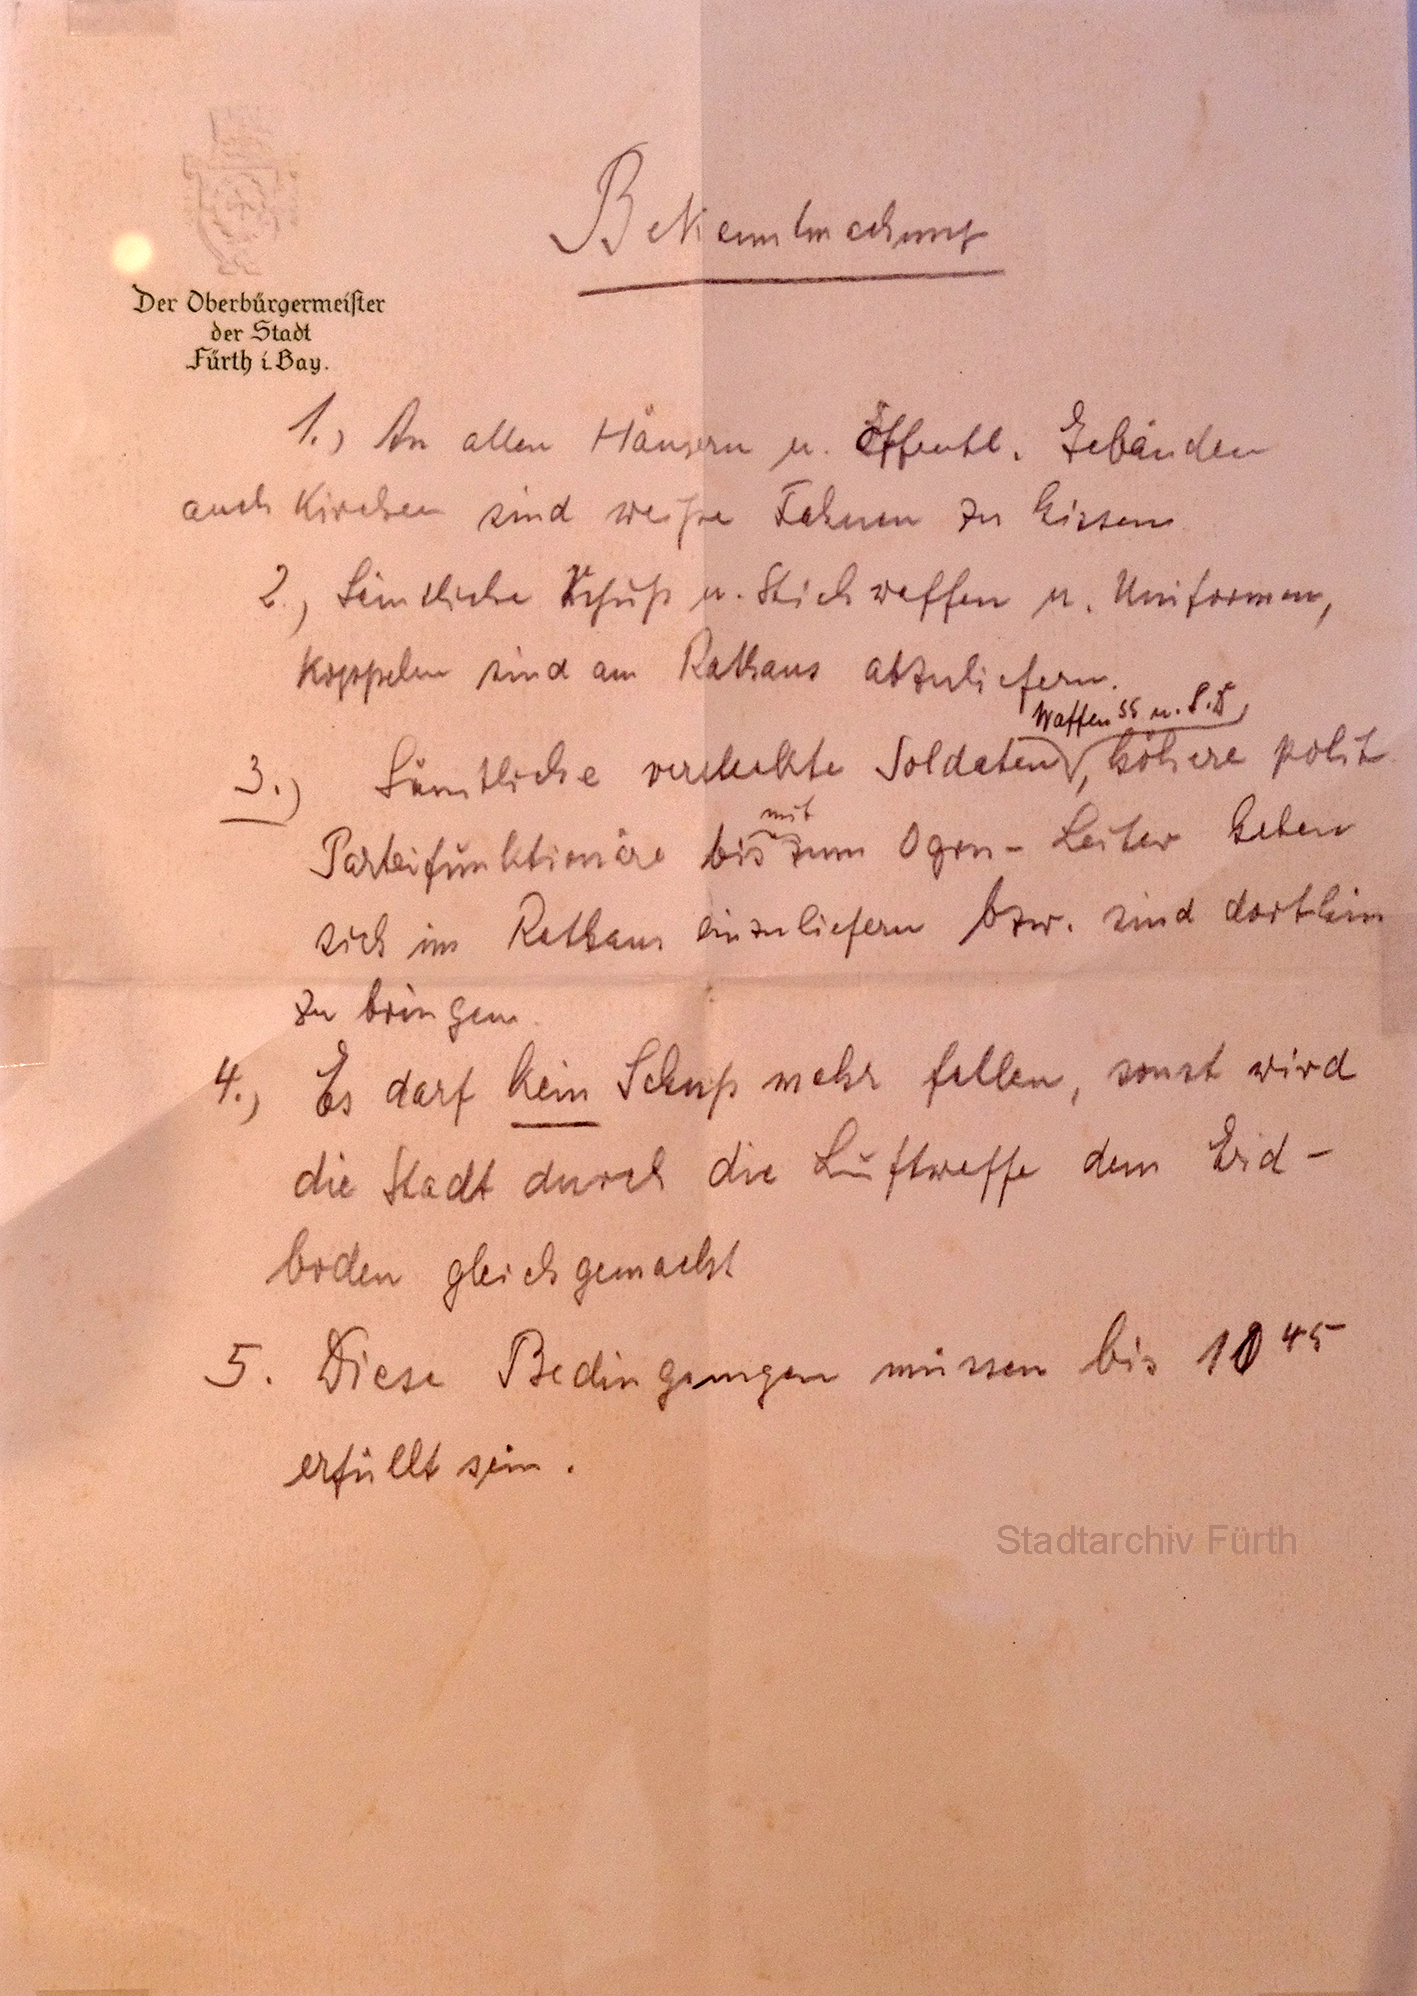 Bekanntmachung
Der Oberbürgermeister
der Stadt
Fürth i. Bay.
1.) An allen Häusern u. öffentl. Gebäuden
auch Kirchen sind weiße Fahnen zu hissen
2.) Sämtliche Schuß u. Stichwaffen u. Uniformen,
Koppeln sind am Rathaus abzuliefern.
Waffen SS u. S.D,
3.) Sämtliche versteckte Soldaten, höhere polit.
mit
Parteifunktionäre bis zum Ogru- Leiter haben
sich im Rathaus einzuliefern bzw. sind dorthin
zu bringen.
4.) Es darf kein Schuß mehr fallen, sonst wird
die Stadt durch die Luftwaffe dem Erd-
boden gleichgemacht
5. Diese Bedingungen müssen bis 10 45
erfüllt sein.
Stadtarchiv Fürth